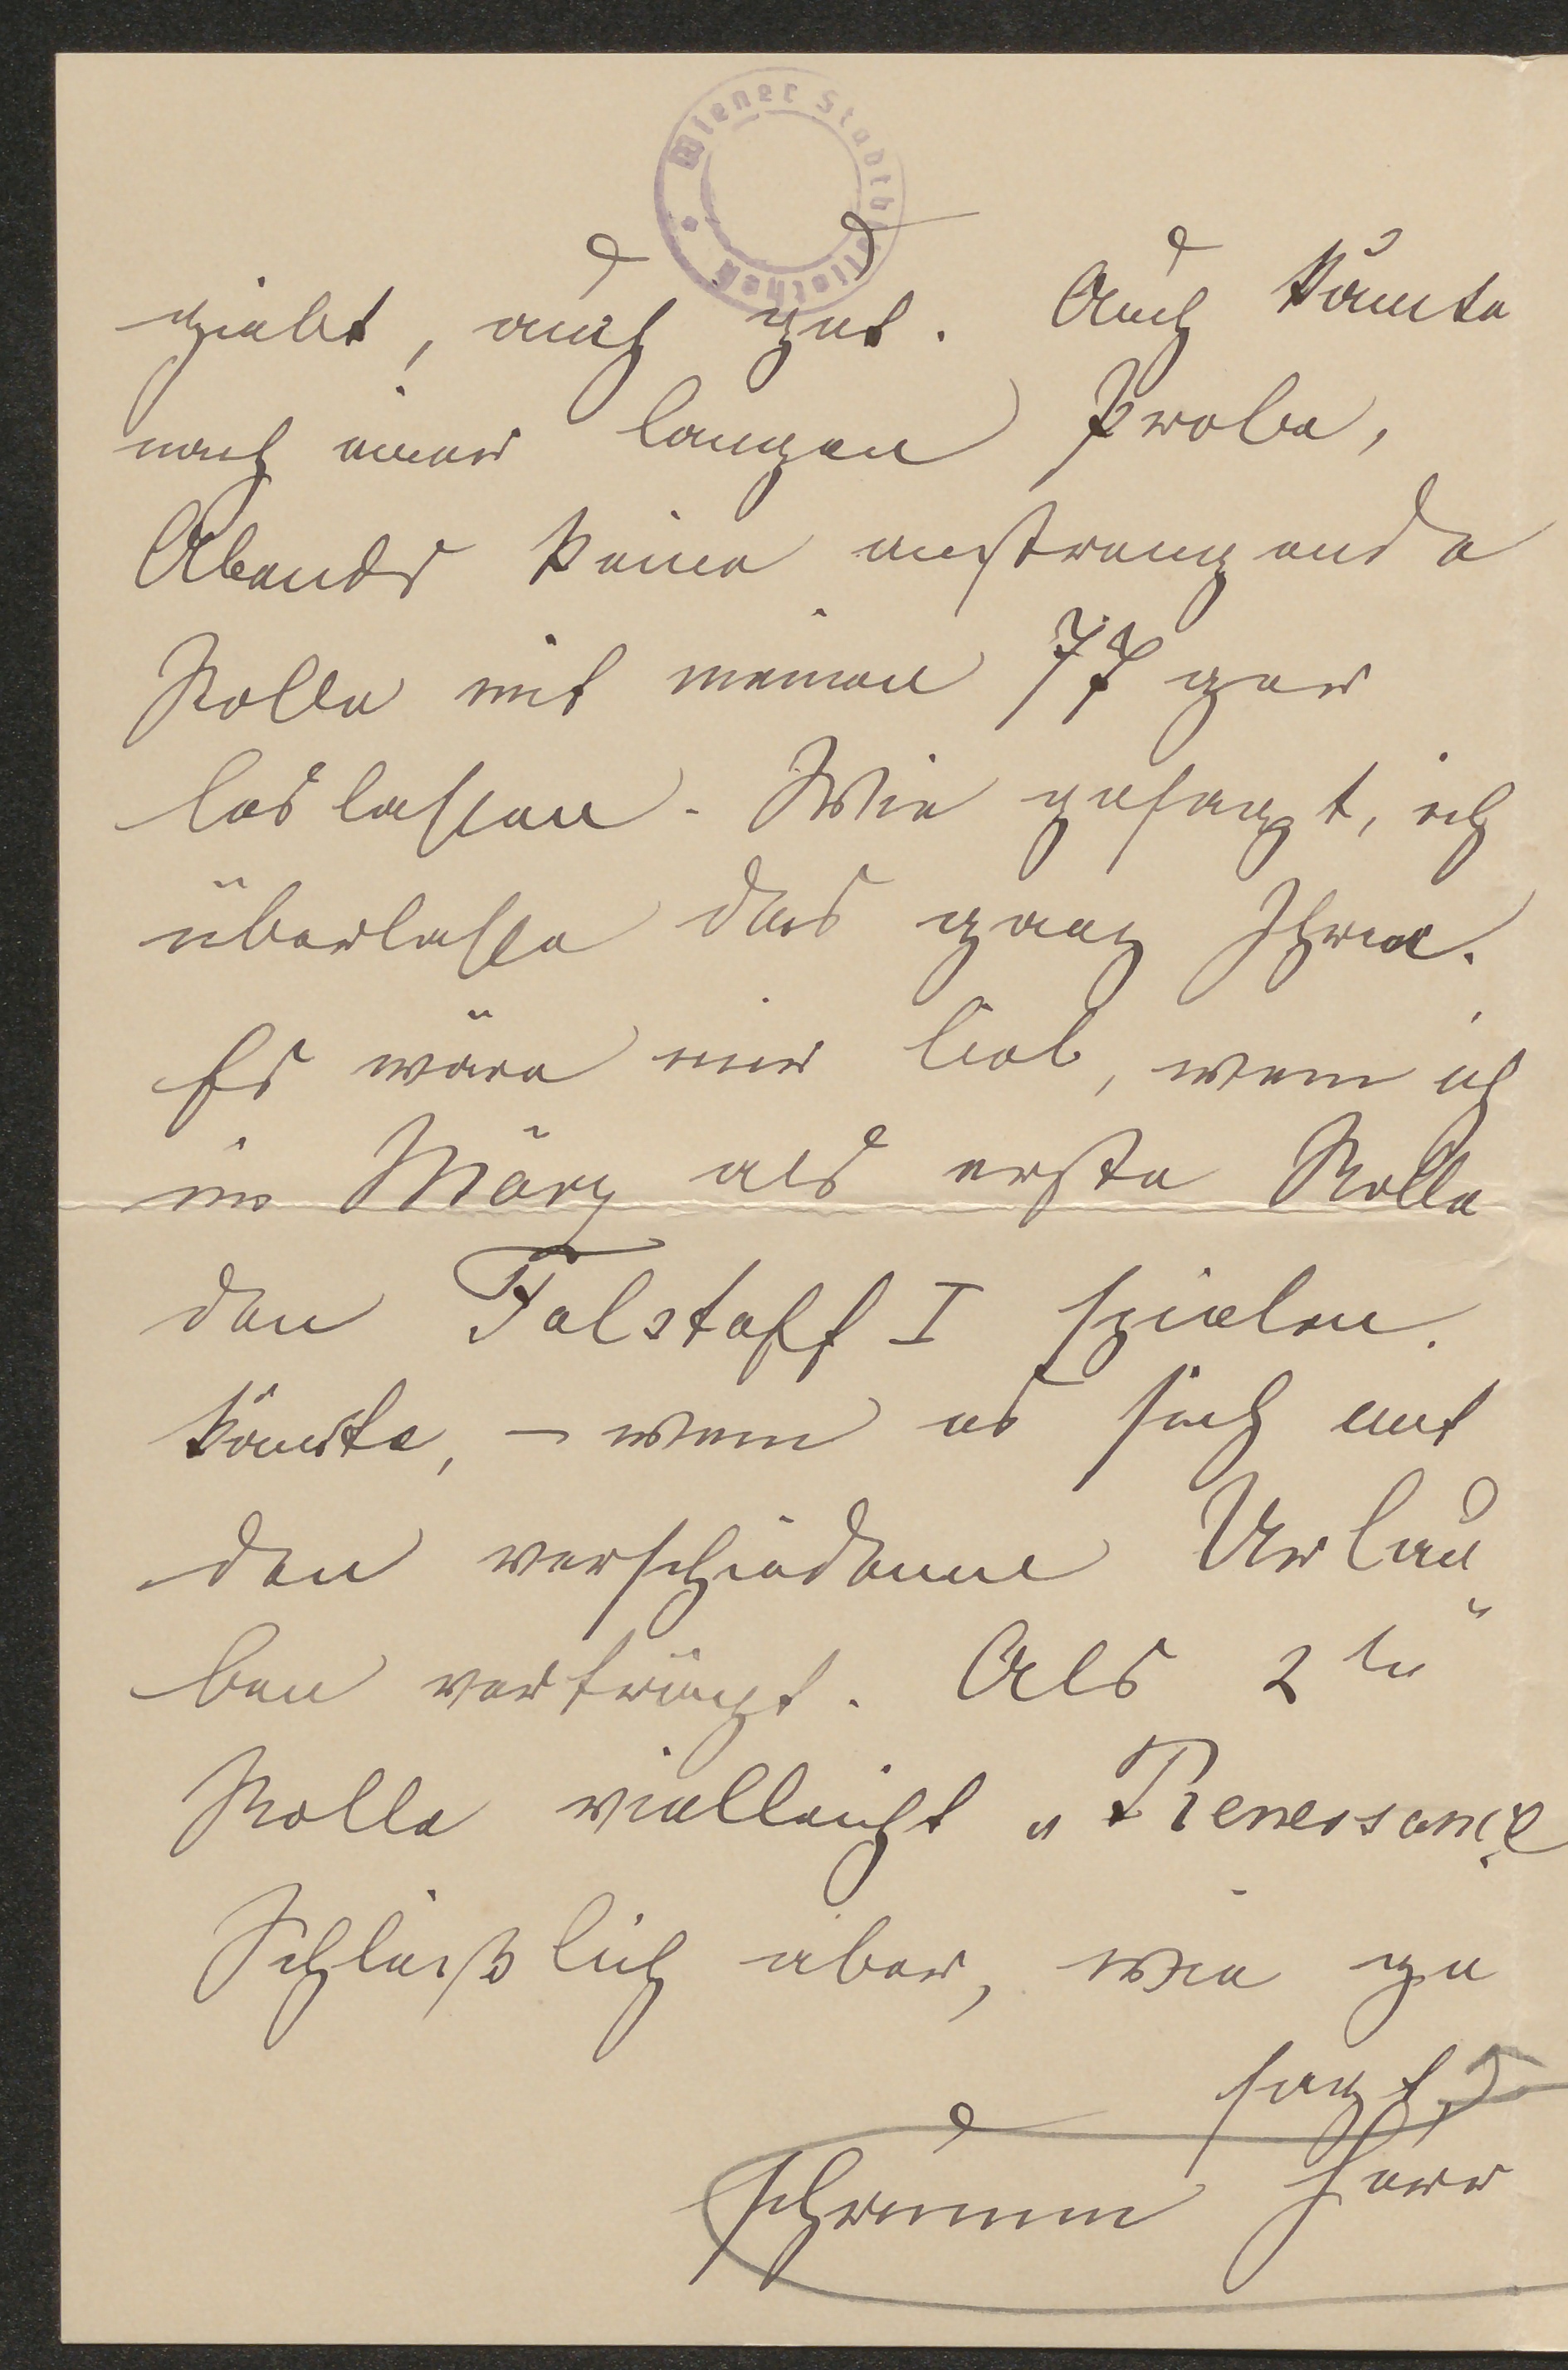 Wiener Stadtbibliothek
giebt, auch gut. Auch könnte
nach einer langen Probe,
Abends keine anstrengende
Rolle mit meinen 77ger
loslassen. Wie gesagt, ich
überlasse das ganz Ihnen.
Es wäre mir lieb, wenn ich
im März als erste Rolle
den Falstaff I spielen.
könnte, – wenn es sich mit
den verschiedenen Urlau„
ben verträgt. Als 2te
Rolle vielleicht „Renessance
Schließlich aber, wie ge
sagt,
Herr